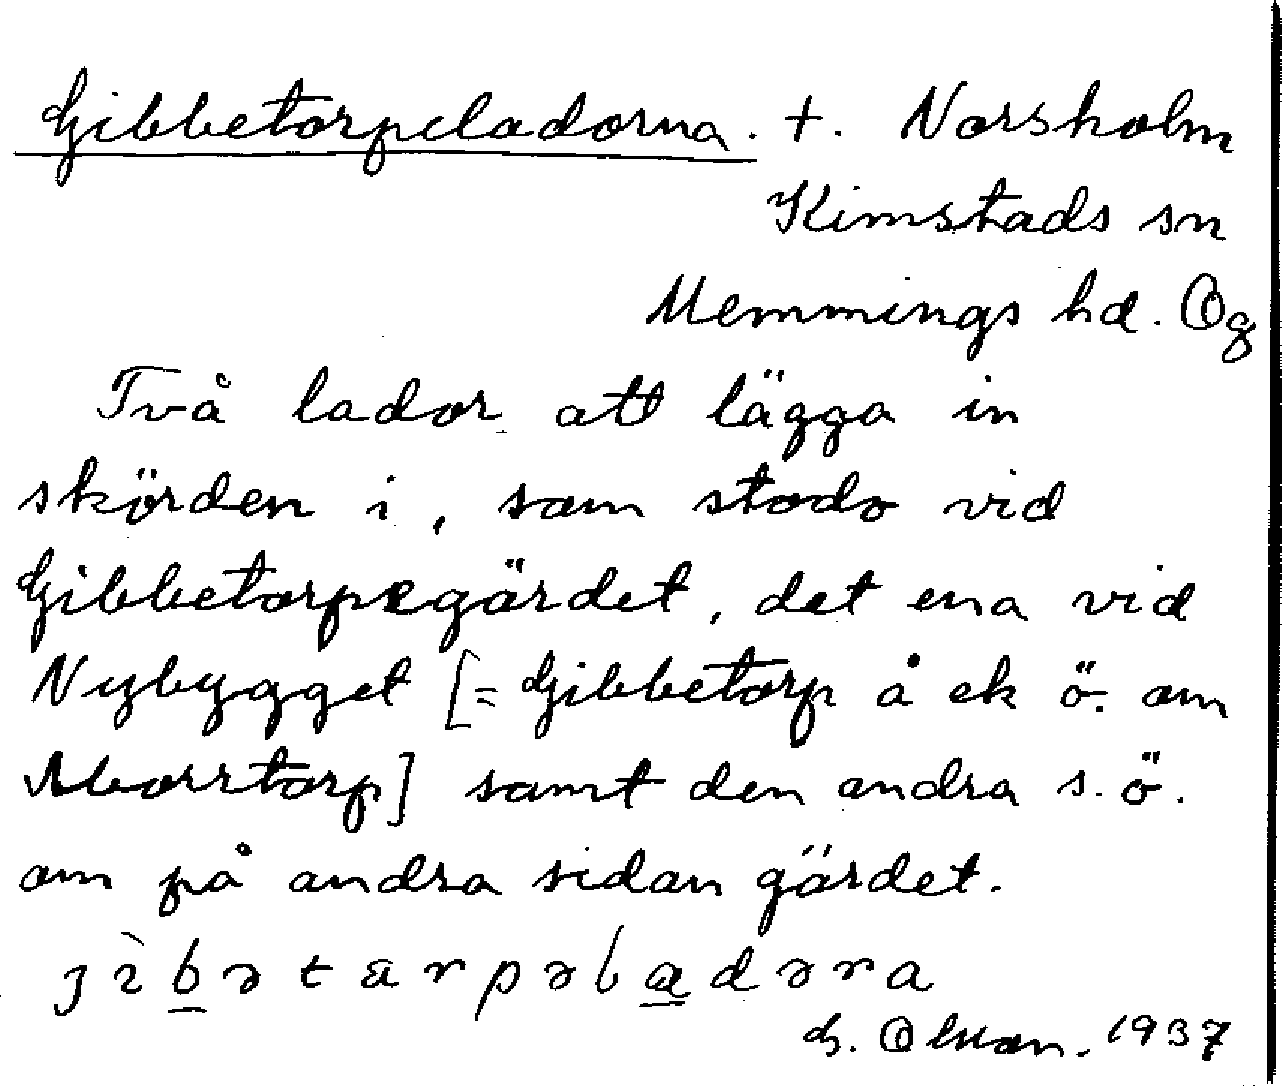 Gibbetorpeladorna. +. Norsholm
Kimstads sn
Memmings hd. Ög
Två lador att lägga in
skörden i, som stodo vid
Gibbetorpegärdet, det ena vid
Nybygget [= Gibbetorp å ek ö. om
Morrtorp] samt den andra s. ö.
om på andra sidan gärdet.
G. Olsson. 1937